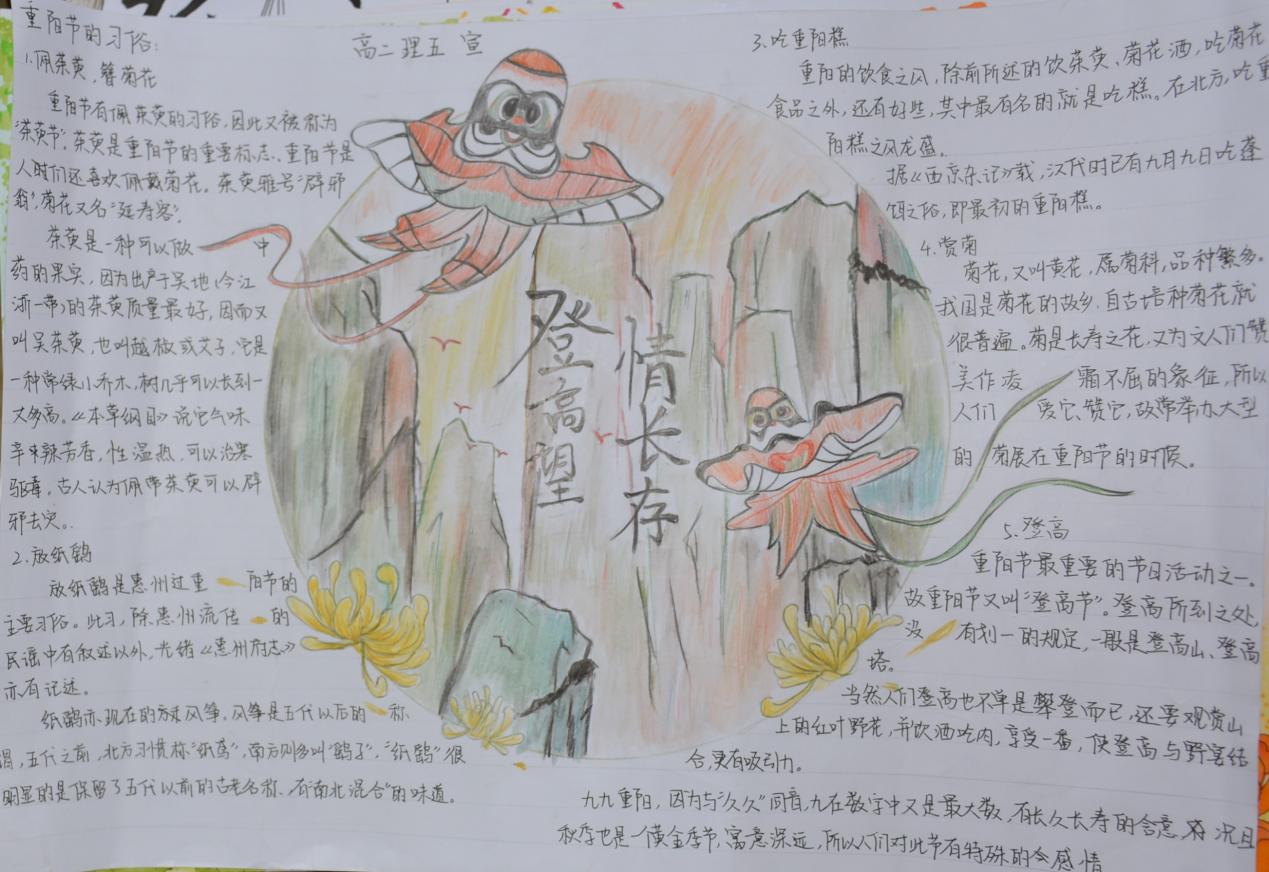 重阳节的习俗:
1.佩茱萸,簪菊花
重阳节有佩茱萸的习俗,因此又被称为
“茱萸节”,茱萸是重阳节的重要标志。重阳节是
人时们还喜欢佩戴菊花。茱萸雅号“辟邪
翁”,菊花又名“延寿客”。
茱萸是一种可以做中
药的果实,因为出产于吴地(今江
浙一带)的茱萸质量最好,因而又
叫吴茱萸,也叫越椒或艾子,它是
一种常绿小乔木,树几乎可以长到一
丈多高。《本草纲目》说它气味
辛辣芳香,性温热,可以治寒
驱毒。古人认为佩带茱萸可以辟
邪去灾。
2.放纸鹞
放纸鹞是惠州过重阳节的
主要习俗。此习,除惠州流传的
民谣中有叙述以外,光绪《惠州府志》
亦有记述。
纸鹞亦现在的放风筝。风筝是五代以后的称
谓,五代之前,北方习惯称“纸鸢”,南方则多叫“鹞子”,“纸鹞”很
明显的是保留了五代以前的古老名称、有“南北混合”的味道。
高二理五 宣
登高望
情长存
3.吃重阳糕
重阳的饮食之风,除前所述的饮茱萸、菊花酒,吃菊花
食品之外,还有好些,其中最有名的就是吃糕。在北方,吃重
阳糕之风尤盛。
据《西京杂记》载,汉代时已有九月九日吃蓬
饵之俗,即最初的重阳糕。
4.赏菊
菊花,又叫黄花,属菊科,品种繁多。
我国是菊花的故乡,自古培种菊花就
很普遍。菊是长寿之花,又为文人们赞
美作凌霜不屈的象征,所以
人们爱它、赞它,故常举办大型
的菊展在重阳节的时候。
5.登高
重阳节最重要的节日活动之一。
故重阳节又叫“登高节”。登高所到之处,
没有划一的规定,一般是登高山、登高
塔。
当然人们登高也不单是攀登而已,还要观赏山
上的红叶野花,并饮酒吃肉,享受一番,使登高与野宴结
合,更有吸引力。
九九重阳,因为与“久久”同音,九在数字中又是最大数,有长久长寿的含意,况且
秋季也是一黄金季节,寓意深远,所以人们对此节有特殊的感情